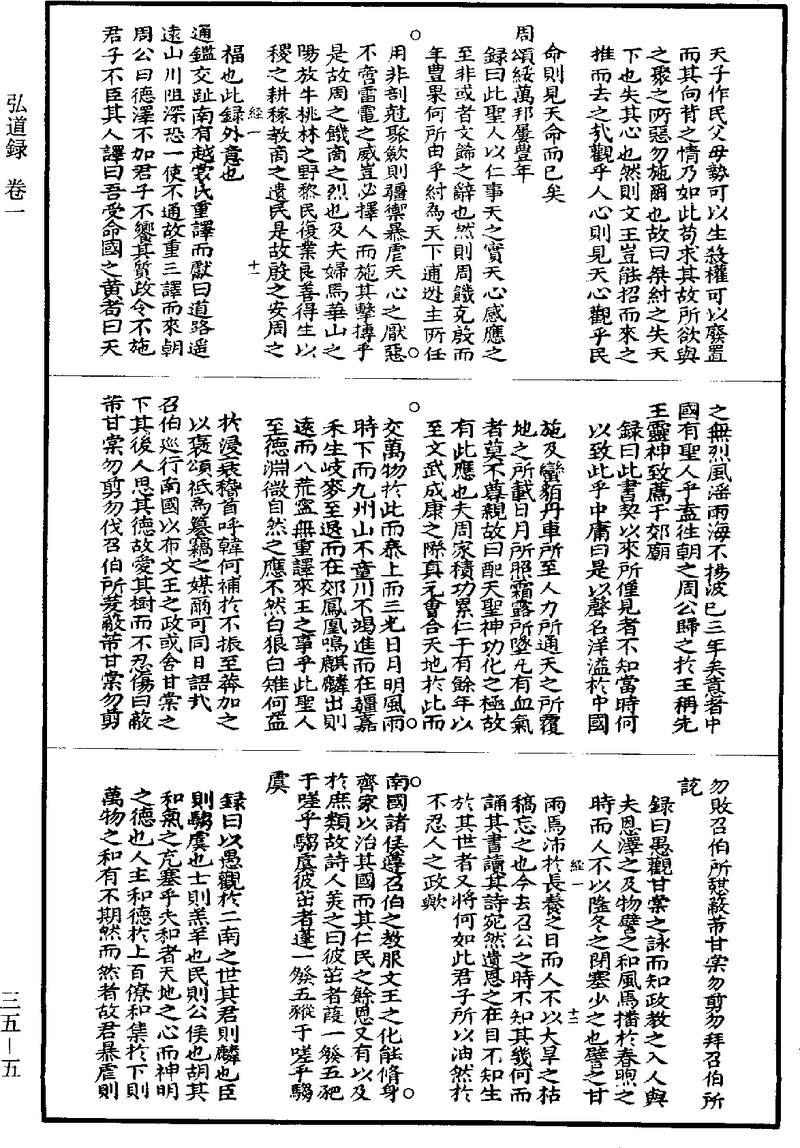 弘道録　卷一
天子作民父母勢可以生殺權可以廢置
而其向背之情乃如此苟求其故所欲與
之聚之所惡勿施爾也故曰桀紂之失天
下也失其心也然則文王豈能招而來之
推而去之哉觀乎人心則見天心觀乎民
命則見天命而已矣
周頌綏萬邦屢豐年
録曰此聖人以仁事天之實天心感應之
至非或者文飾之辭也然則周饑克殷而
年豐果何所由乎紂為天下逋逃主所任
用非剖尅聚歛則彊禦暴虐天心之厭惡
不啻雷電之威豈必擇人而施其擊摶乎
是故周之饑商之烈也及夫婦馬華山之
陽放牛桃林之野黎民復業良善得生以
稷之耕稼教商之遺民是故殷之安周之
經一　十一
福也此録外意也
通鑑交趾南有越裳氏重譯而獻曰道路遥
遠山川阻深恐一使不通故重三譯而來朝
周公曰德澤不加君子不饗其質政令不施
君子不臣其人譯曰吾受命國之黄耇曰天
之無烈風滛雨海不揚波已三年矣意者中
國有聖人乎盍往朝之周公歸之於王稱先
王靈神致薦于郊廟
録曰此書契以來所僅見者不知當時何
以致此乎中庸曰是以聲名洋溢於中國
施及蠻貊舟車所至人力所通天之所覆
地之所載日月所照霜露所墜凡有血氣
者莫不尊親故曰配天聖神功化之極故
有此應也夫周家積功累仁千有餘年以
至文武成康之際真元會合天地於此而
交萬物於此而泰上而三光日月明風雨
時下而九州山不童川不竭進而在疆嘉
禾生岐麥至退而在郊鳳凰鳴麒麟出則
遠而八荒寧無重譯來王之事乎此聖人
至德淵微自然之應不然白狼白雉何益
於浸衰稽首呼韓何補於不振至莽加之
以褒頌祗為簒竊之媒爾可同日語哉
召伯巡行南國以布文王之政或舍甘棠之
下其後人思其德故愛其樹而不忍傷曰蔽
芾甘棠勿剪勿伐召伯所茇蔽芾甘棠勿剪
勿敗召伯所憇蔽芾甘棠勿剪勿拜召伯所
說
録曰愚觀甘棠之詠而知政教之入人與
夫恩澤之及物譬之和風焉播於春煦之
時而人不以隆冬之閉塞少之也譬之甘
經一　十二
雨焉沛於長養之日而人不以大旱之枯
稿忘之也今去召公之時不知其幾何而
誦其書讀其詩宛然遺恩之在目不知生
於其世者又將何如此君子所以油然於
不忍人之政歟
南國諸侯遵召伯之教服文王之化能脩身
齊家以治其國而其仁民之餘恩又有以及
於庶類故詩人美之曰彼茁者葭一發五豝
于嗟乎騶虞彼茁者蓬一發五豵于嗟乎騶
虞
録曰以愚觀於二南之世其君則麟也臣
則騶虞也士則羔羊也民則公侯也胡其
和氣之充塞乎夫和者天地之心而神明
之德也人主和德於上百僚和集於下則
萬物之和有不期然而然者故君暴虐則
三五—五